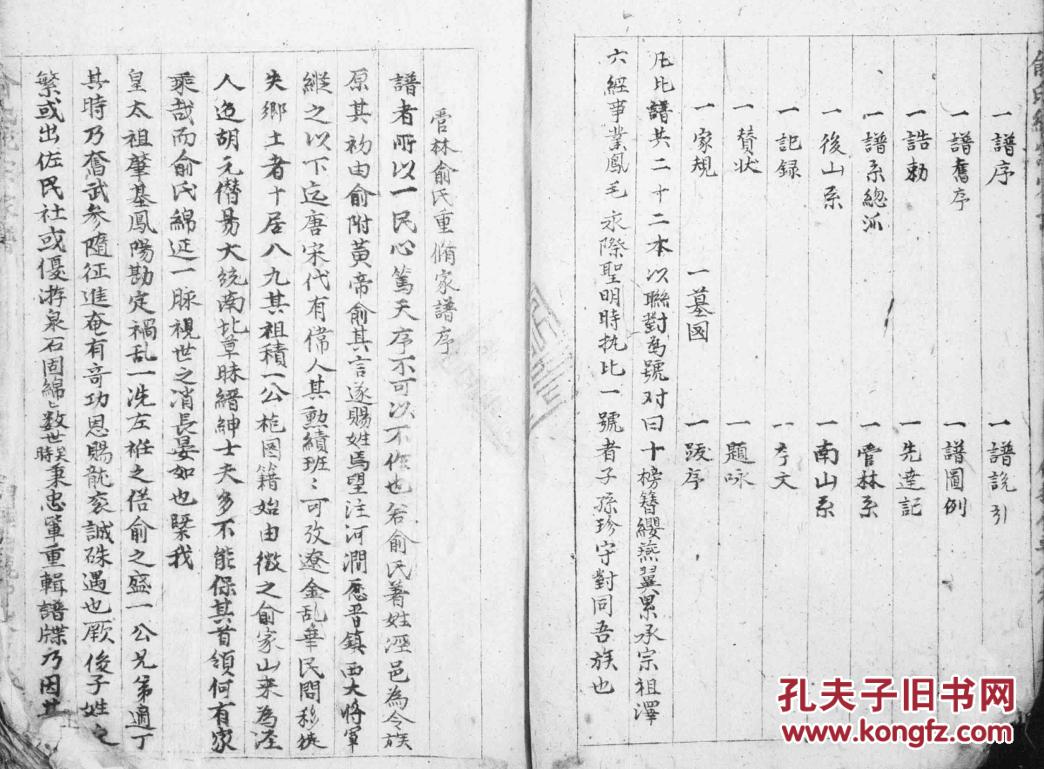 一譜序　一譜説引
一譜舊序　一譜圖例
一誥勅　一先達記
一譜系總派　一管林系
一後山系　一南山系
一記録　一夲文
一賛状　一題咏
一家規　一墓図　一跋序
凡比譜共二十二本以聯對為號对曰十榜簪纓燕翼累承宗祖澤
六經事業鳳毛永際聖明時执比一號者子孫珍守對同吾族也
管林俞氏重脩家譜序
譜者所以一民心篤天序不可以不作也咨俞氏著姓涇邑為今族
原其初由俞附黄帝俞其言遂賜姓焉望注河澗歷晋鎮西大將軍
縱之以下迄唐宋代有偉人其勲績班〻可攷遼金乱華民間移徙
失鄉土者十居八九其祖積一公枹图籍始由徽之俞家山来為涇
人迨胡元僭易大统南北草昧縉紳士夫多不能保其首領何有家
乘哉而俞氏綿延一脉視世之消長晏如也臯我
皇太祖肇基鳳陽勘定禍乱一洗左袵之俗俞之盛一公兄弟適丁
其時乃奮武参隨征進奄有奇功恩賜龍衮誠硃遇也厥後子姓之
繁或出佐民社或優游泉石固綿〻数世矣時秉忠軰重輯譜牒乃因其
孔夫子旧书网
www.kongfz.com